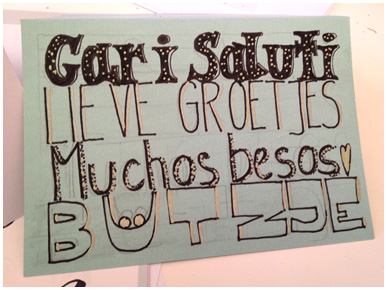 Cari Saluti
LIEVE GROETJES
Muchos besos
BUTZJE